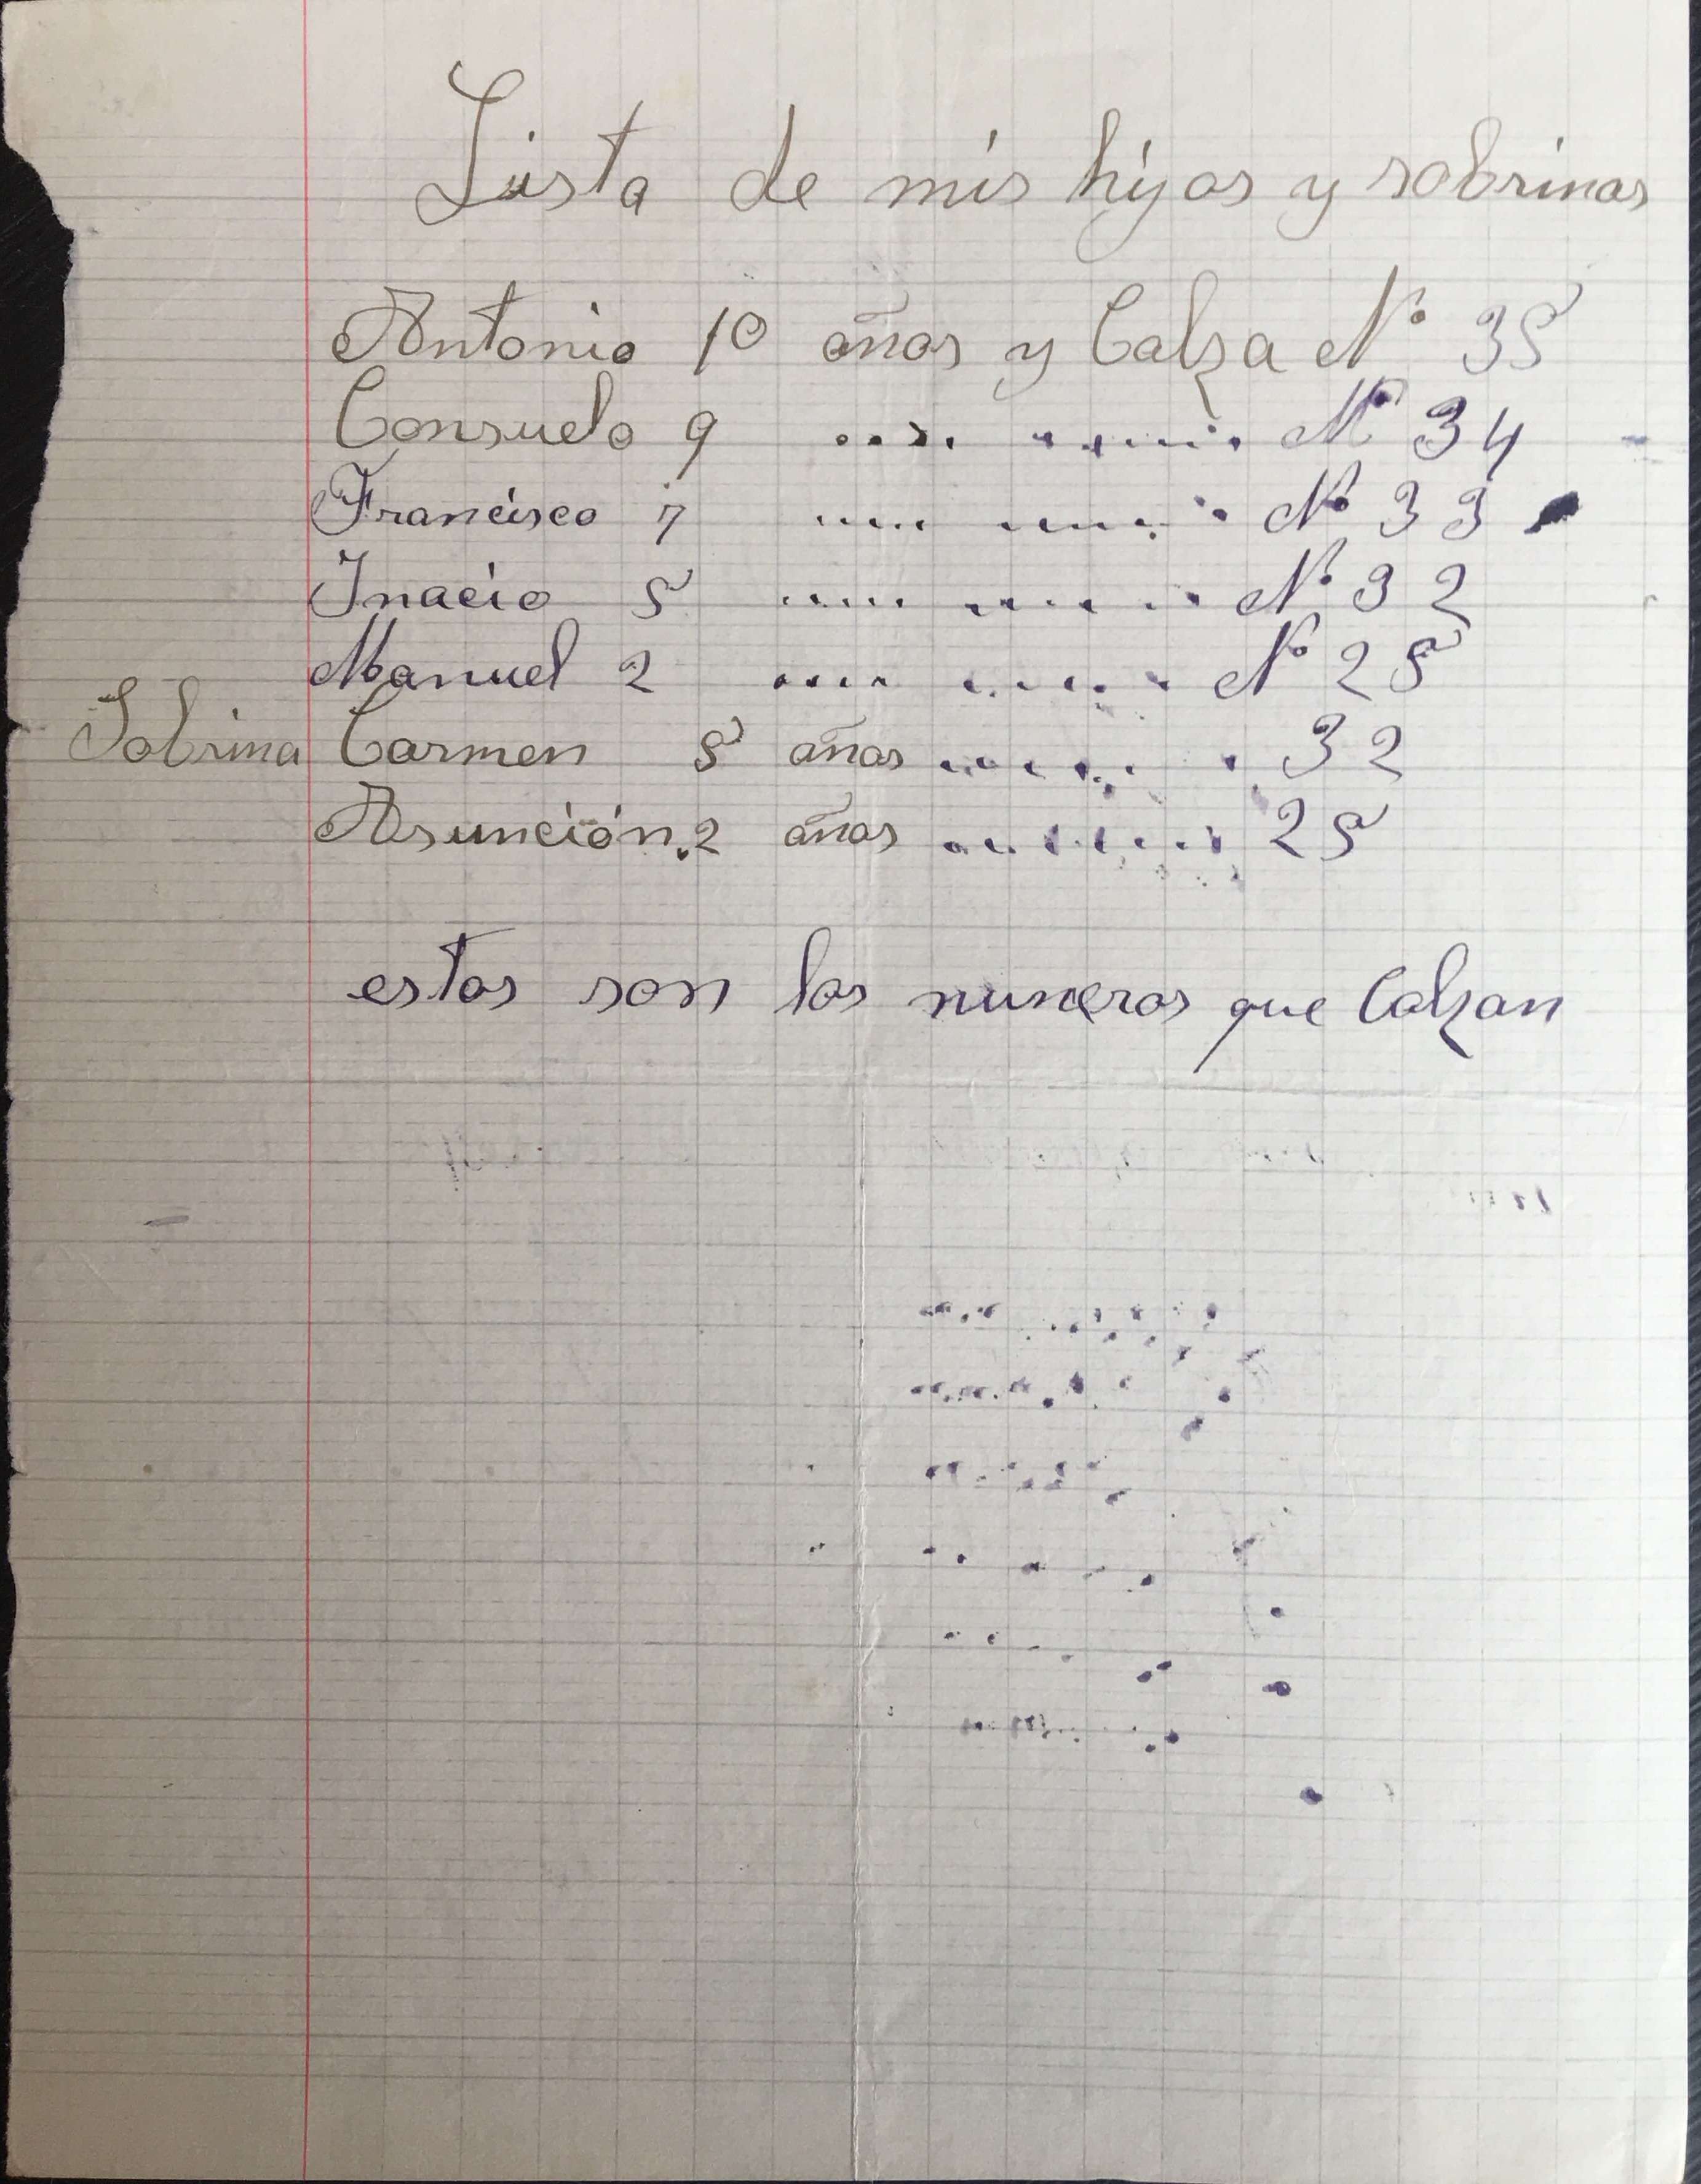 Lista de mis hijos y sobrinas
Antonio 10 años y Calza Nº 35
Consuelo 9 .... ...... Nº 34
Francisco 7 .... ...... Nº 33
Inacio 5 .... ...... Nº 32
Manuel 2 .... ..... Nº 25
Sobrina Carmen 5 años ...... 32
Asunción.2 años ...... 25
estos son los numeros que Calzan